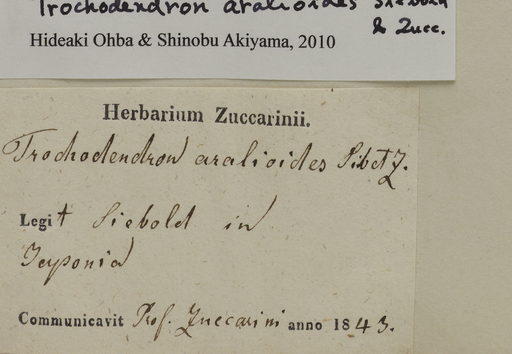 Trochodendron aralioides Siebold
& Zucc.
Hideaki Ohba & Shinobu Akiyama, 2010
Herbarium Zuccarinii.
Trochodendron aralioides Sib et Z.
Legit Siebold in
Japonia
Communicavit Prof. Zuccarini anno 1843.